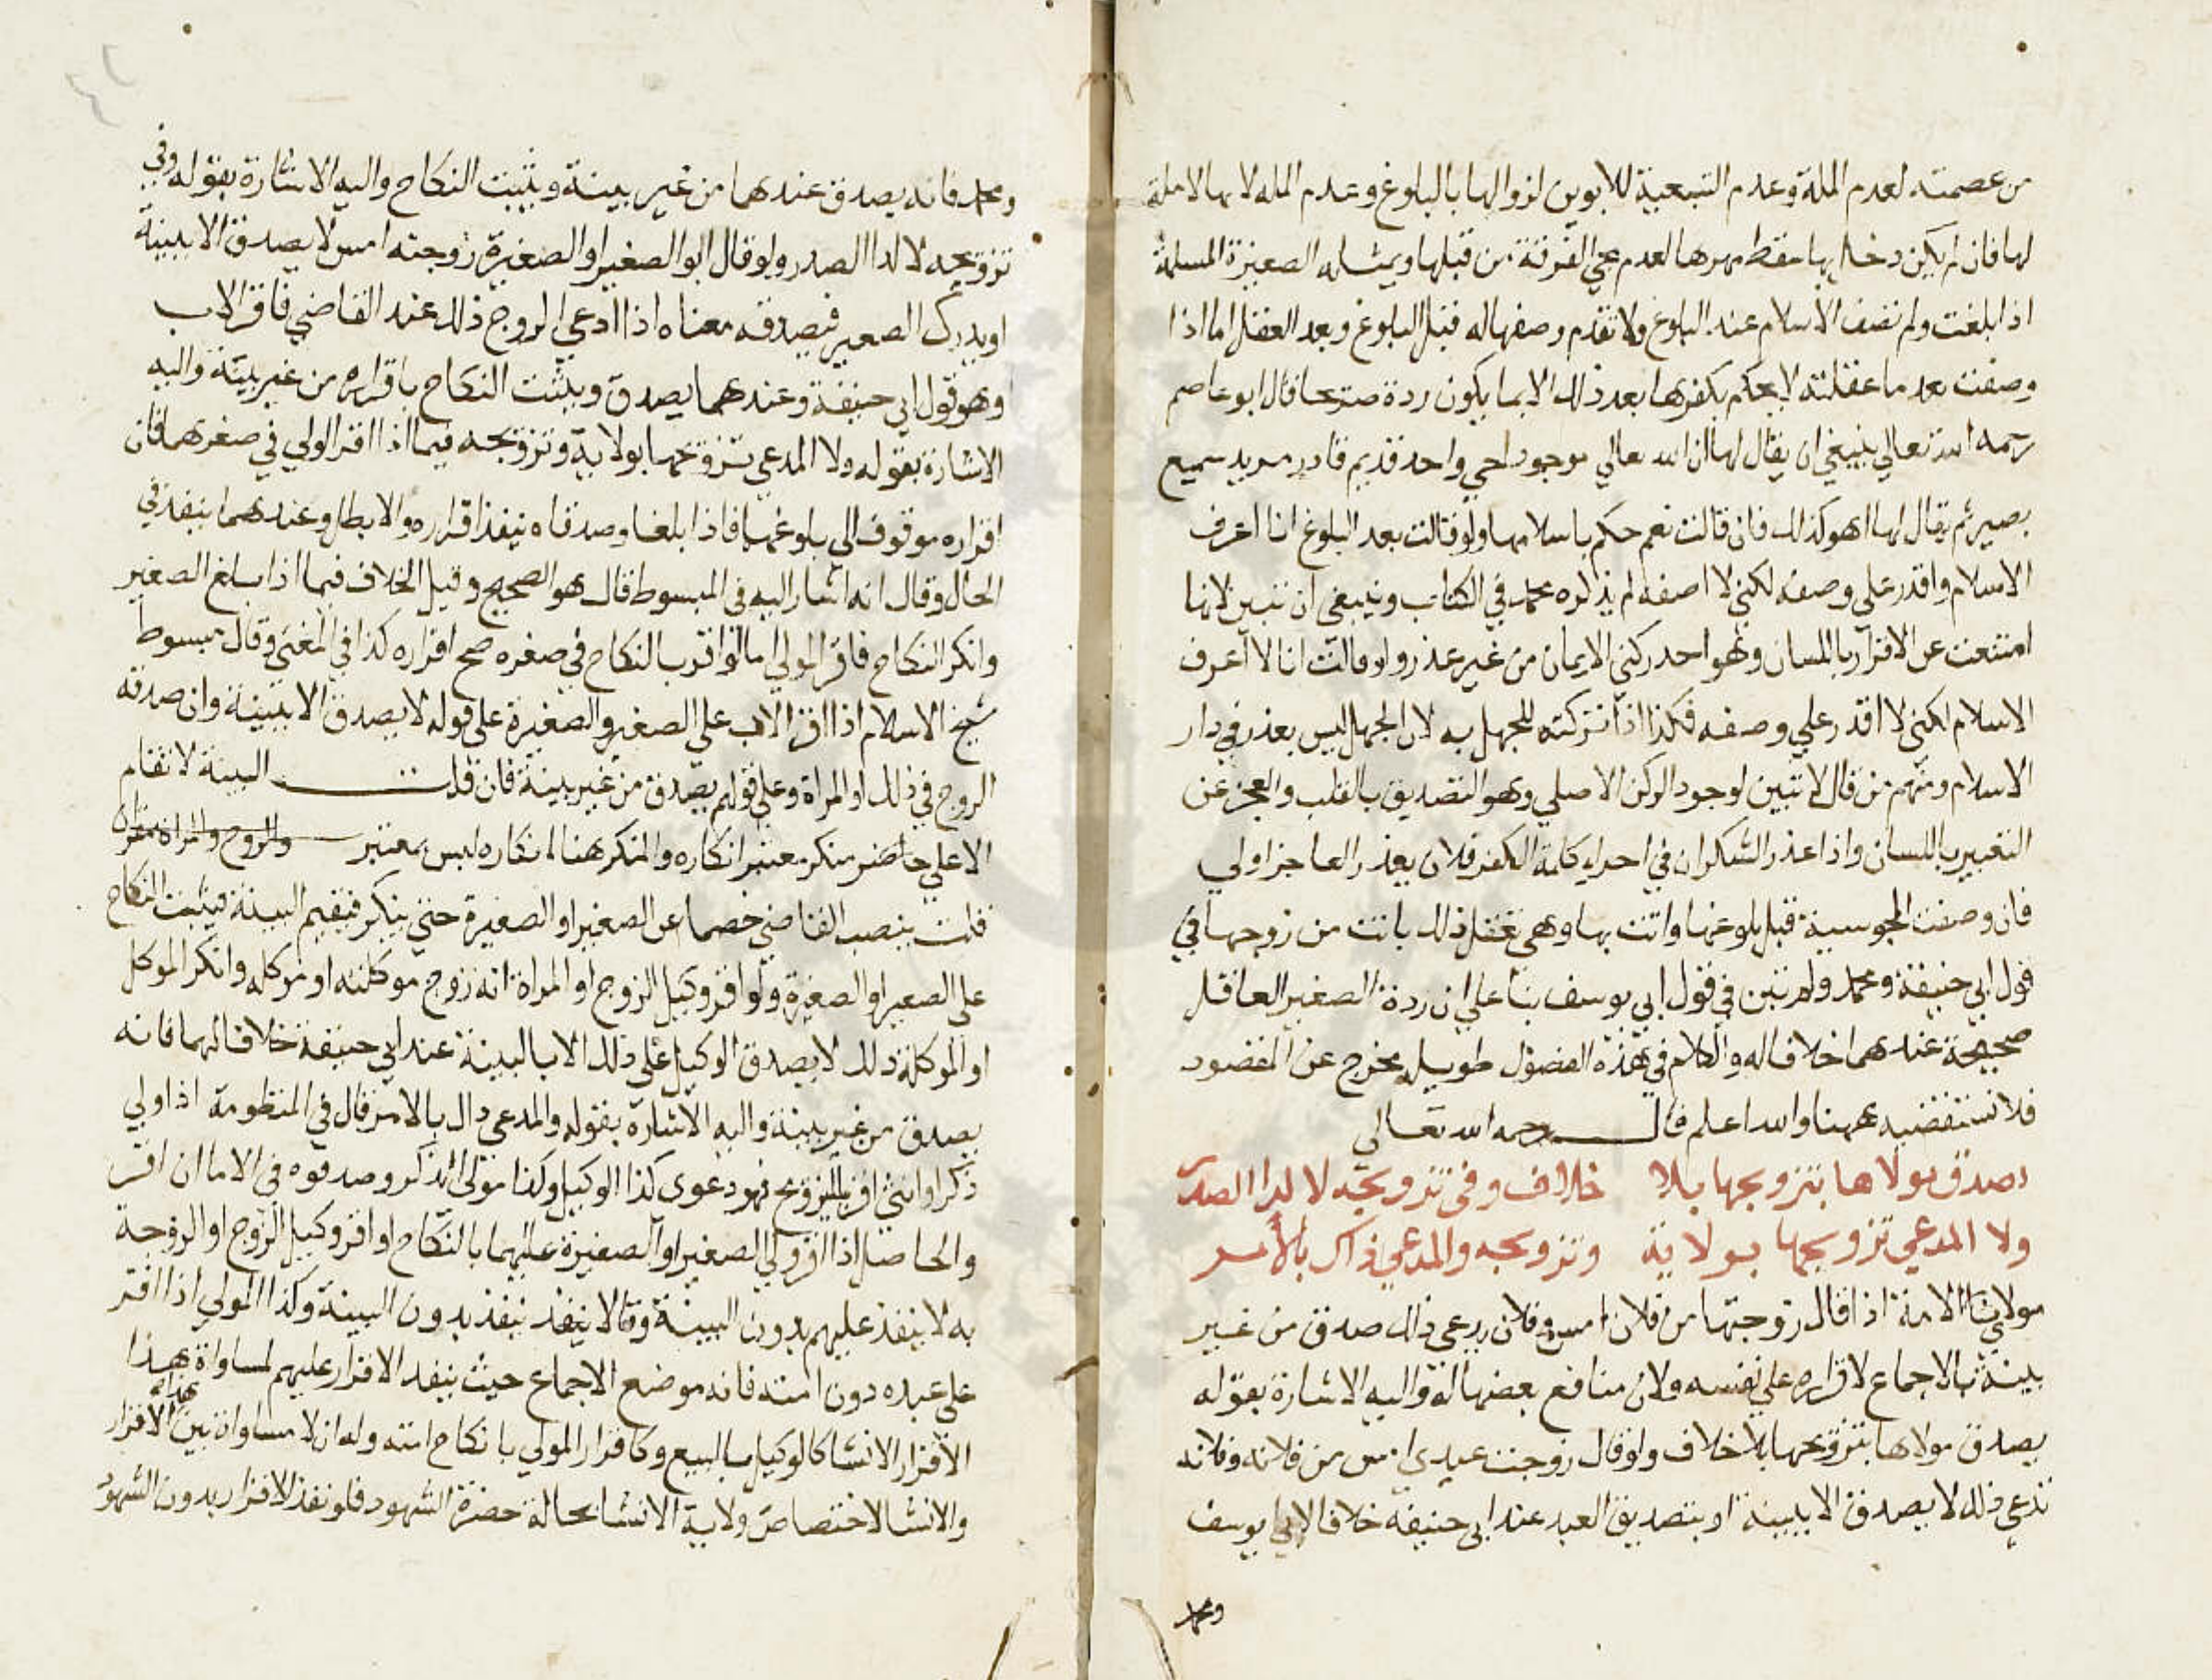 من عصمته لعدم الملة وعدم التبعية للابوين لزوالها بالبلوغ وعدم المله لانها لا ملة
لها فان لم يكن دخل بها سقط مهرها لعدم مجي الفرقة من قبلها وبمثله الصغيرة المسلمة
اذا بلغت ولم تصف الاسلام عند البلوغ ولا تقدم وصفها له قبل البلوغ وبعد العقل اما اذا
وصفت بعد ما عقلته لا يحكم بكفرها بعد ذلك الا بما يكون ردة صريحا قال ابو عاصم
رحمه الله تعالي ينبغي ان يقال لها ان الله تعالي موجود حي واحد قديم قادر مريد سميع
بصير ثم يقال لها اهو كذلك فان قالت نعم حكم باسلامها ولو قالت بعد البلوغ انا اعرف
الاسلام واقدر علي وصفه لكني لا اصفه لم يذكره محمد في الكتاب وينبغي ان تبين لانها
امتنعت عن الاقرار باللسان وهو احد ركني الايمان من غير عذر ولو قالت انا لا اعرف
الاسلام لكني لا اقدر علي وصفه فكذا اذا تركته للجهل به لان الجهل ليس بعذر في دار
الاسلام ومنهم من قال لا تبين لوجود الركن الاصلي وهو التصديق بالقلب والعجز عن
التعبير باللسان واذا عذر السكران في اجراء كلمة الكفر فلان يعذر العاجز اولي
فان وصفت المجوسية قبل بلوغها واتت بها وهي تعقل ذلك بانت من زوجها في
قول ابي حنيفة ومحمد ولم تبين في قول ابي يوسف بنا علي ان ردة الصغير العاقل
صحيحة عندهما خلافا له والكلام في هذه الفصول طويل يخرج عن المقصود
فلا نستقصيه ههنا والله اعلم قال رحمه الله تعالي
وصدق مولاها بتزويجها بلا خلاف وفي تزويجه لا لدا الصدر
ولا المدعي تزويجها بولاية وتزويجه والمدعي ذاك بالأمر
مولي الامة اذا قال زوجتها من فلان امس وفلان يدعي ذلك صدق من غير
بينة بالاجماع لاقراره علي نفسه ولان منافع بضعها له واليه الاشارة بقوله
يصدق مولاها بتزويجها بلا خلاف ولو قال زوجت عبدي امس من فلانه وفلانه
تدعي ذلك لا يصدق الا ببينة او بتصديق العبد عند ابي حنيفه خلافا لابي يوسف
ومحمد
ومحمد فانه يصدق عندهما من غير بينة ويثبت النكاح واليه الاشارة بقوله وفي
تزويجه لا لدا الصدر ولو قال ابو الصغير او الصغيرة زوجته امس لا يصدق الا ببينة
او يدرك الصغير فيصدقه معناه اذا ادعي الزوج ذلك عند القاضي فاقر الاب
وهو قول ابي حنيفة وعندهما يصدق ويثبت النكاح باقراره من غير بينة واليه
الاشارة بقوله ولا المدعي تزويجها بولاية وتزويجه فيما اذا اقر الولي في صغرهما فان
اقراره موقوف الي بلوغهما فاذا بلغا وصدقاه ينفذ اقراره والا بطل وعندهما ينفذ في
الحال وقال انه اشار اليه في المبسوط قال هو الصحيح وقيل الخلاف فيما اذا بلغ الصغير
وانكر النكاح فاقر الولي اما لو اقر بالنكاح في صغره صح اقراره كذا في المغني وقال مبسوط
شيخ الاسلام اذا اقر الاب علي الصغير والصغيرة علي قوله لا يصدق الا ببينة وان صدقه
الزوج في ذلك او المراة وعلي قولهم يصدق من غير بينة فان قلت البينة لا تقام
الا علي حاضر منكر معتبر انكاره والمنكر هنا انكاره ليس بمعتبر والزوج والمراة مقران
قلت ينصب القاضي خصما عن الصغير او الصغيرة حتي ينكر فيقيم البينة فيثبت النكاح
علي الصغير او الصغيرة ولو اقر وكيل الزوج او المراة انه زوج موكلته او موكله وانكر الموكل
او الموكلة ذلك لا يصدق الوكيل علي ذلك الا بالبينة عند ابي حنيفة خلافا لهما فانه
يصدق من غير بينة واليه الاشارة بقوله والمدعي ذاك بالامر قال في المنظومة اذا ولي
ذكر او انثي اقر بالتزويج فهو دعوي كذا الوكيل وكذا مولي الذكر وصدقوه في الاما ان اقر
والحاصل اذا اقر ولي الصغير او الصغيرة عليهما بالنكاح او اقر وكيل الزوج او الزوجة
به لا ينفذ عليهم بدون البينة وقالا ينفذ بدون البينة وكذا المولي اذا اقر
علي عبده دون امته فانه موضع الاجماع حيث ينفد الاقرار عليهم لمساواة هذا
الاقرار الانشا كالوكيل بالبيع وكاقرار المولي بانكاح امته وله ان لا مساواة بين هذا الاقرار
والانشا لاختصاص ولاية الانشا بحالة حضرة الشهود فلو نفذ الاقرار بدون الشهود